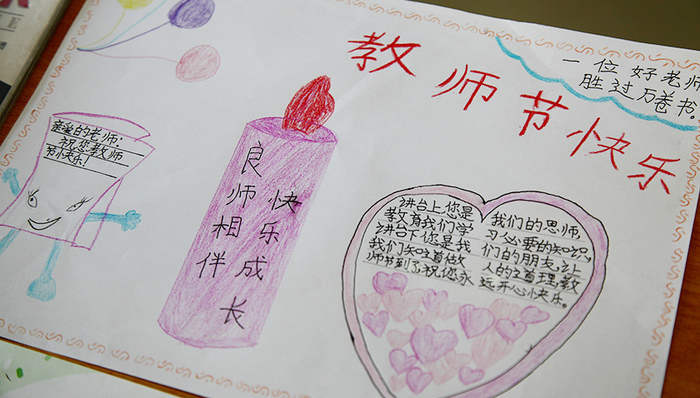 教师节快乐
一位好老师
胜过万卷书。
亲爱的老师:
祝您教师
节快乐!
良师相伴
快乐成长
讲台上您是我们的恩师,
教育我们学习必要的知识,
讲台下您是我们的朋友,让
我们知道做人的道理,教
师节到了祝您永远开心快乐。